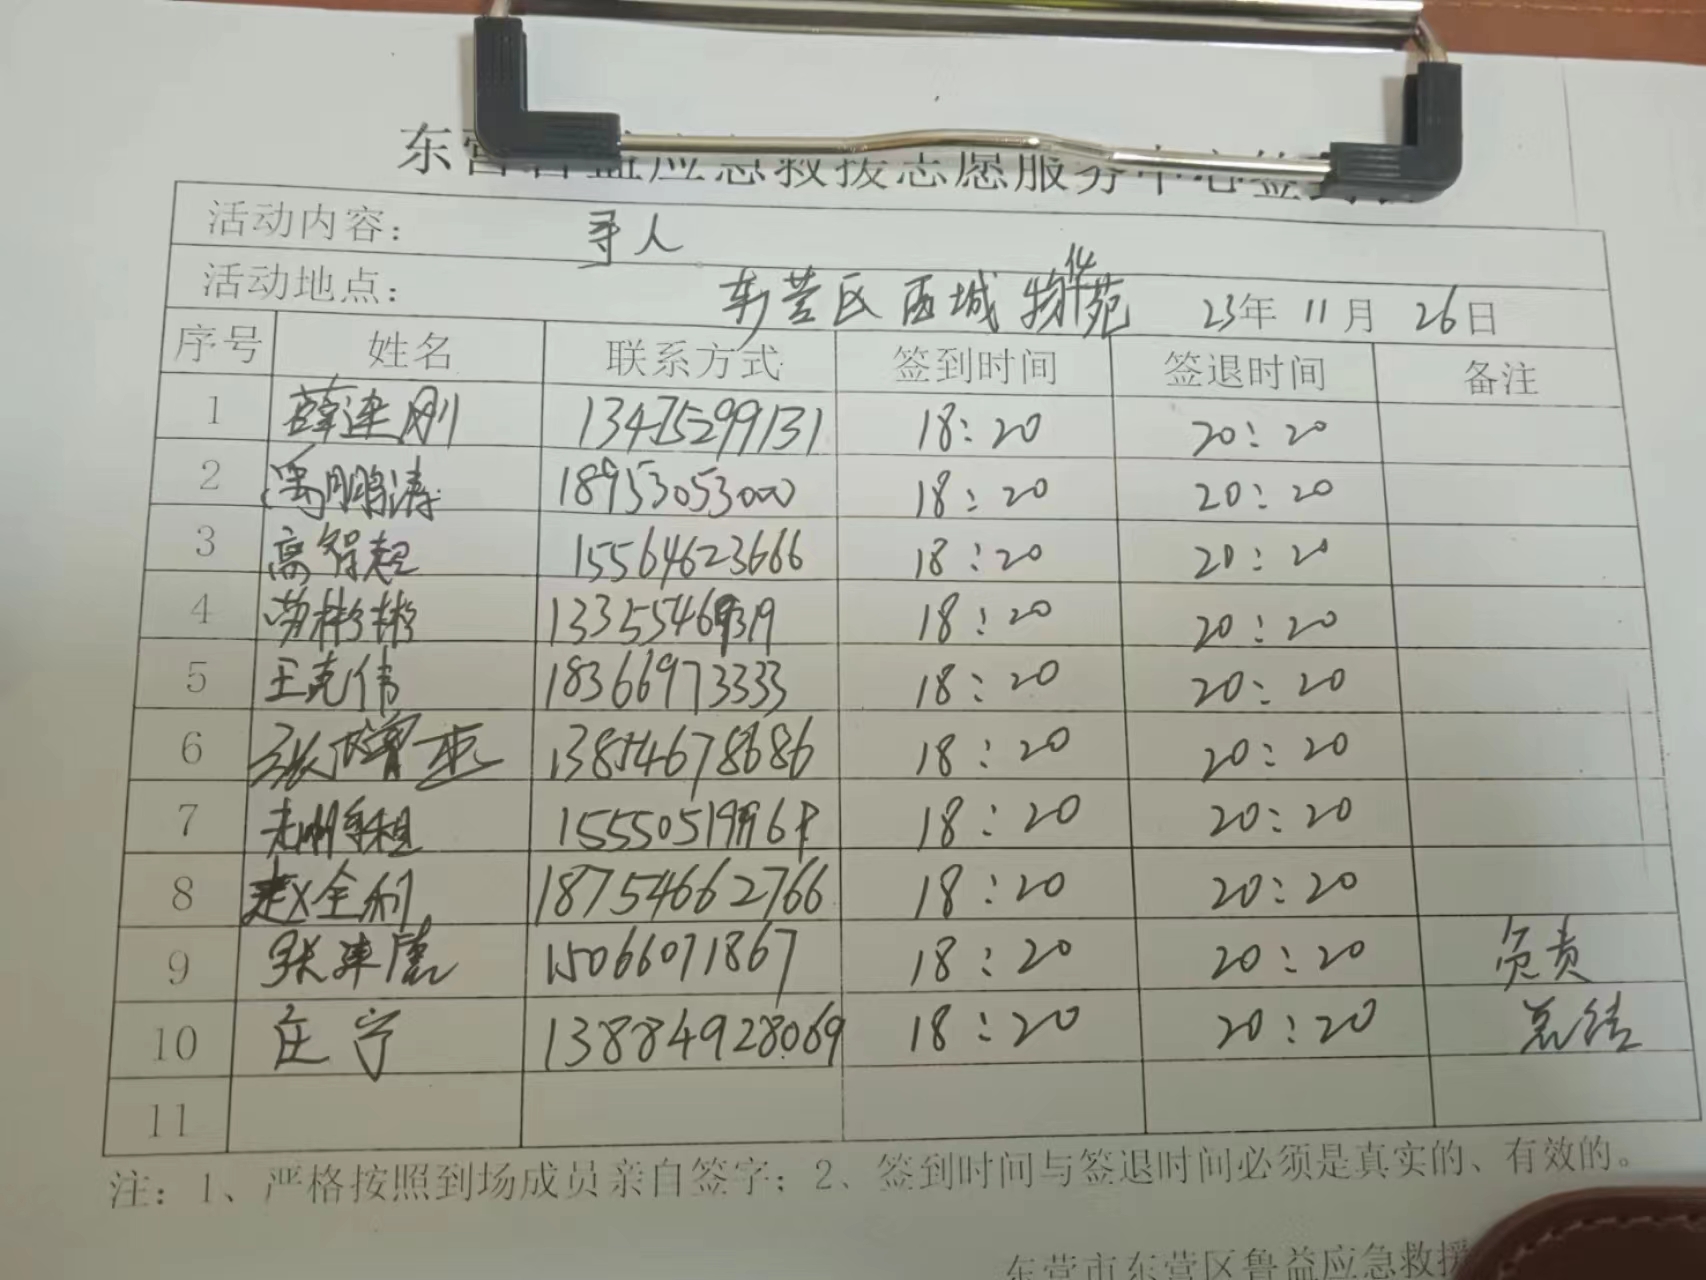 东营鲁益应急救援志愿服务中心签到表
活动内容： 寻人
活动地点： 东营区西城物华苑 23年 11月 26日
序号 姓名 联系方式 签到时间 签退时间 备注
1 薛建刚 13475299131 18:20 20:20
2 禹鹏涛 18953053000 18:20 20:20
3 高智超 15564623666 18:20 20:20
4 劳彬彬 18:20 20:20
5 王克伟 18366973333 18:20 20:20
6 13854678686 18:20 20:20
7 18:20 20:20
8 赵全利 18754662766 18:20 20:20
9 张建唐 15066071867 18:20 20:20 负责
10 庄宁 13884928069 18:20 20:20 总结
11
注：1、严格按照到场成员亲自签字；2、签到时间与签退时间必须是真实的、有效的。
东营市东营区鲁益应急救援